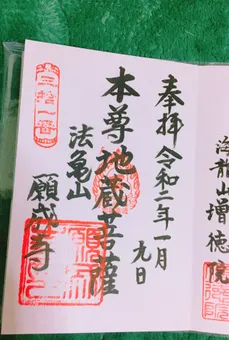 奉拝 令和二年一月九日
本尊地蔵菩薩
法亀山
願成寺
増徳院